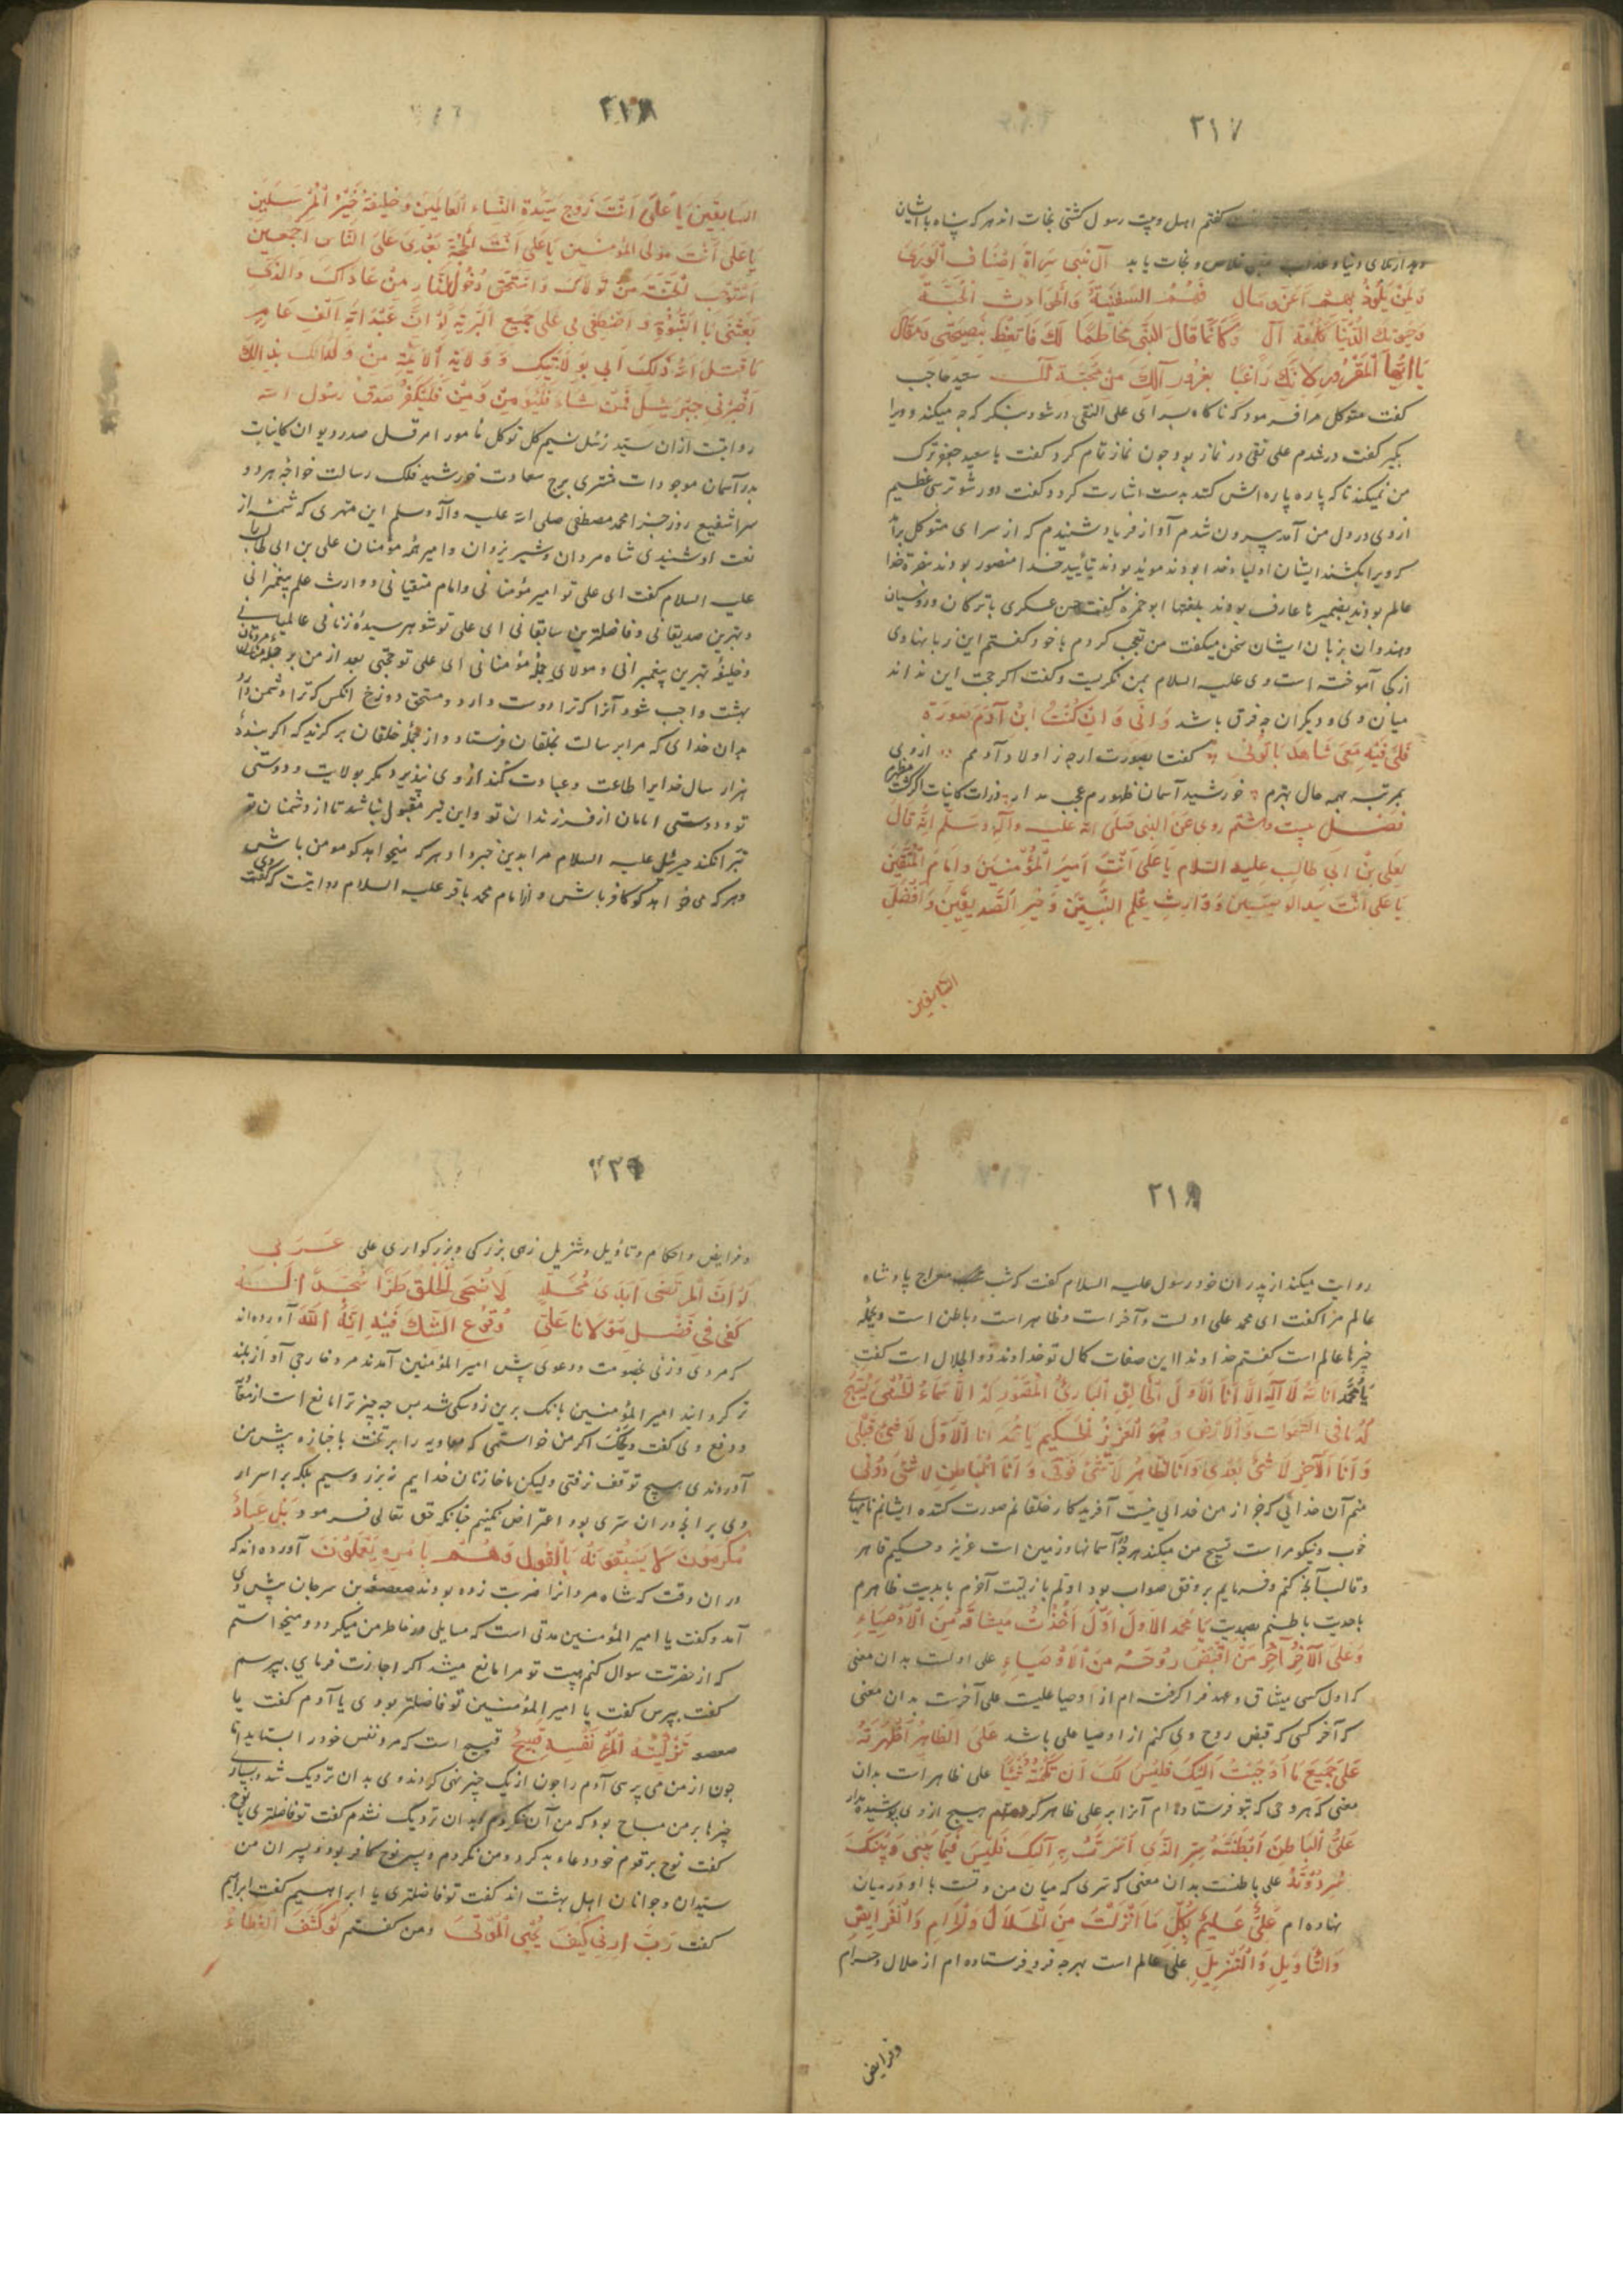 ۲۱۷
کفتم اهل بیت رسول کشتی نجات اند هر که پناه با ایشان
خلاص و نجات یابد آل نبی
وَلِمَنْ يَلُوذُ بِهِمْ فَهُمُ السَّفِينَةُ
الدُّنْيَا وَكَأَنَّمَا قَالَ النَّبِي مُخَاطِبًا لَكَ فَاتَّعِظْ بِنَصِيحَتِي وَمَقَالِ
يَا أَيُّهَا الْمَغْرُورُ مِنْ سعید حاجب
کفت متوکل مرا فرمود که ناکاه بسرای علی النقی در شو و بنکر که چه میکند و ویرا
بکیر کفت در شدم علی نقی در نماز بود چون نماز تمام کرد کفت یا سعید جعفر ترک
من نمیکند تا که پاره پاره اش کنند بدست اشارت کرد و کفت دور شو ترسی عظیم
از وی در دل من آمد بیرون شدم آواز فریاد شنیدم که از سرای متوکل برآمد
که ویرا بکشتند ایشان اولیاء خدا بودند
عالم بودند ابو حمزه کفت حسن عسکری با ترکان و روسیان
و هندوان بزبان ایشان سخن میکفت من تعجب کردم با خود کفتم این زبانها وی
از کی آموخته است وی علیه السلام بمن نکریست و کفت اکر حجت این نداند
میان وی و دیکران چه فرق باشد وَإِنِّي وَإِنْ كُنْتُ ابْنَ آدَمَ صُورَةً
فَلِي فِيهِ مَعْنًى شَاهِدٌ بِأُبُوَّتِي کفتا بصورت ارچه ز اولاد آدمم از وی
بمرتبه بهمه حال برترم خورشید آسمان ظهورم عجب مدار ذرات کاینات اکر کشت مظهرم
فصل بیست و هشتم روي عن النبي صلى الله عليه وآله وسلم انه قال
لعلي بن ابي طالب عليه السلام يا علي انت امير المؤمنين وامام المتقين
يا علي انت سيد الوصيين ووارث علم النبيين وخير الصديقين وافضل
السابقين
۲۱۸
السابقين يا علي انت زوج سيدة النساء العالمين وخليفة خير المرسلين
يا علي انت مولى المؤمنين يا علي انت الحجة بعدي على الناس اجمعين
استوجب الجنة من تولاك واستحق دخول النار من عاداك والذي
بعثني بالنبوة واصطفاني على جميع البرية لو ان عبدا الف عام
ما قبل الله ذلك الا بولايتك وولاية الائمة من ولدك بذلك
اخبرني جبرئيل فمن شاء فليؤمن ومن فليكفر صدق رسول الله
روایتست از آن سید کل توکل مامور امر قل صدر دیوان کاینات
بدر آسمان موجودات مشتری برج سعادت خورشید فلک رسالت خواجه هر دو
سرا شفیع روز جزا محمد مصطفی صلی الله علیه وآله وسلم این مهتری که شمه از
نعت او شنیدی شاه مردان و شیر یزدان و امیر مؤمنان علی بن ابی طالب
علیه السلام کفت ای علی تو امیر مؤمنانی و امام متقیانی و وارث علم پیغمبرانی
و بهترین صدیقانی و فاضلترین سابقانی ای علی تو شوهر سیده زنانی عالمیانی
و خلیفه بهترین پیغمبرانی و مولای جمله مؤمنانی ای علی تو حجتی بعد از من بر جمله
بهشت واجب شود آنرا که ترا دوست دارد و مستحق دوزخ آنکس که ترا دشمن دارد
بدان خدای که مرا برسالت بخلقان فرستاد و از جمله خلقان برکزید که اکر بنده
هزار سال خدایرا طاعت و عبادت کند از وی نپذیرد مکر بولایت و دوستی
تو و دوستی امامان از فرزندان تو و این نیز مقبول نباشد تا از دشمنان تو
تبرا نکند جبرئیل علیه السلام مرا بدین خبر داد هر که میخواهد کو مومن باش
و هر که می خواهد کو کافر باش و از امام محمد باقر علیه السلام روایتست که کفت
۲۱۹
روایت میکند از پدران خود رسول علیه السلام کفت که شب معراج پادشاه
عالم مرا کفت ای محمد علی اولست و آخر است و ظاهر است و باطن است و بجمله
چیزها عالم است کفتم خداوندا این صفات کمال تو خداوند ذوالجلال است کفت
يا محمد انا الله لا اله الا انا الاول الخالق البارئ المصور له الاسماء الحسنى يسبح
له ما في السموات والارض وهو العزيز الحكيم يا محمد انا الاول لا شئ قبلي
وانا الآخر لا شئ بعدي وانا الظاهر لا شئ فوقي وانا الباطن لا شئ دوني
منم آن خدائی که جز از من خدائی نیست آفریدکار خلقانم صورت کننده ایشانم نامهای
خوب و نیکو مراست تسبیح من میکند هر چه در آسمانها و زمین است عزیز و حکیم قاهر
و غالب آنچه کنم و فرمایم بر وفق صواب بود اولم بازلیت آخرم بابدیت ظاهرم
باحدیت باطنم بصمدیت يا محمد الاول اول اخذت ميثاقه من الاوصياء
وعلي الآخر آخر من اقبض روحه من الاوصياء علی اولست بدان معنی
که اول کسی میثاق و عهد فرا کرفته ام از اوصیا علیست علی آخرست بدان معنی
که آخر کسی که قبض روح وی کنم از اوصیا علی باشد علي الظاهر اظهرته
على جميع ما اوحيت اليك فليس لك ان تكتمه شيئا علی ظاهر است بدان
معنی که هر وحی که بتو فرستاده ام آنرا بر علی ظاهر کردم هیچ از وی پوشیده مدار
علي الباطن ابطنته سر الذي اسررته اليك فليس فيما بيني وبينك
سر دونه علی باطنست بدان معنی که سری که میان من و تست با او در میان
نهاده ام علي عليم بكل ما انزلت من الحلال والحرام والفرايض
والتأويل والتنزيل علی عالم است بهرچه فرو فرستاده ام از حلال و حرام
و فرایض
و فرایض و احکام و تأویل و تنزیل زهی بزرکی و بزرکواری علی عربی
لو ان المرتضى ابدى محله لاضحى الخلق طرا سجدا له
كفى في فضل مولانا علي وقوع الشك فيه انه الله آورده اند
که مردی و زنی بخصومت و دعوی پیش امیر المؤمنین آمدند مرد خارجی آواز بلند
تر کردانید امیر المؤمنین بانک برین زد سکی شد پس چه چیز ترا مانع است از
و دفع وی کفت ویحک اکر من خواستمی که معاویه را بر تخت یا جنازه پیش من
آوردندی هیچ توقف نرفتی ولیکن ما خازنان خدایم نه بزر و سیم بلکه بر اسرار
وی بر انچه در آن سری بود اعتراض نکنیم چنانکه حق تعالی فرمود بل عباد
مكرمون لا يسبقونه بالقول وهم بامره يعملون آورده اند که
در ان وقت که شاه مردانرا ضربت زده بودند صعصعه بن پیش وی
آمد و کفت یا امیر المؤمنین مدتی است که مسایلی در خاطر من میکردد و میخواستم
که از حضرتت سوال کنم هیبت تو مرا مانع میشد اکر اجازت فرمایی بپرسم
کفت بپرس کفت یا امیر المؤمنین تو فاضلتر بودی یا آدم کفت یا
صعصعه تزكية المرء نفسه قبيح قبیح است که مرد نفس خود را بستاید اما
چون از من می پرسی آدم را چون از یک چیز نهی کردند وی بدان نزدیک شد و بسیار
چیزها بر من مباح بود که من آن نکردم و بدان نزدیک نشدم کفت تو فاضلتری یا نوح
کفت نوح بر قوم خود دعاء بد کرد و من نکردم و پسر نوح کافر بود و پسران من
سیدان جوانان اهل بهشت اند کفت تو فاضلتری یا ابراهیم کفت ابراهیم
کفت رب ارني كيف تحيي الموتى و من کفتم لو كشف الغطاء